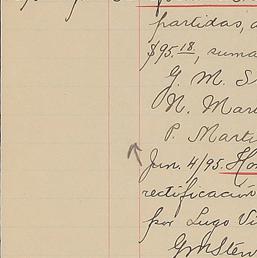 partidas,
$95.18, suma
G. M. S
N. Mar
P. Marti
Jun. 4/95. Ho
rectificación
por Lugo Vi
GMSten